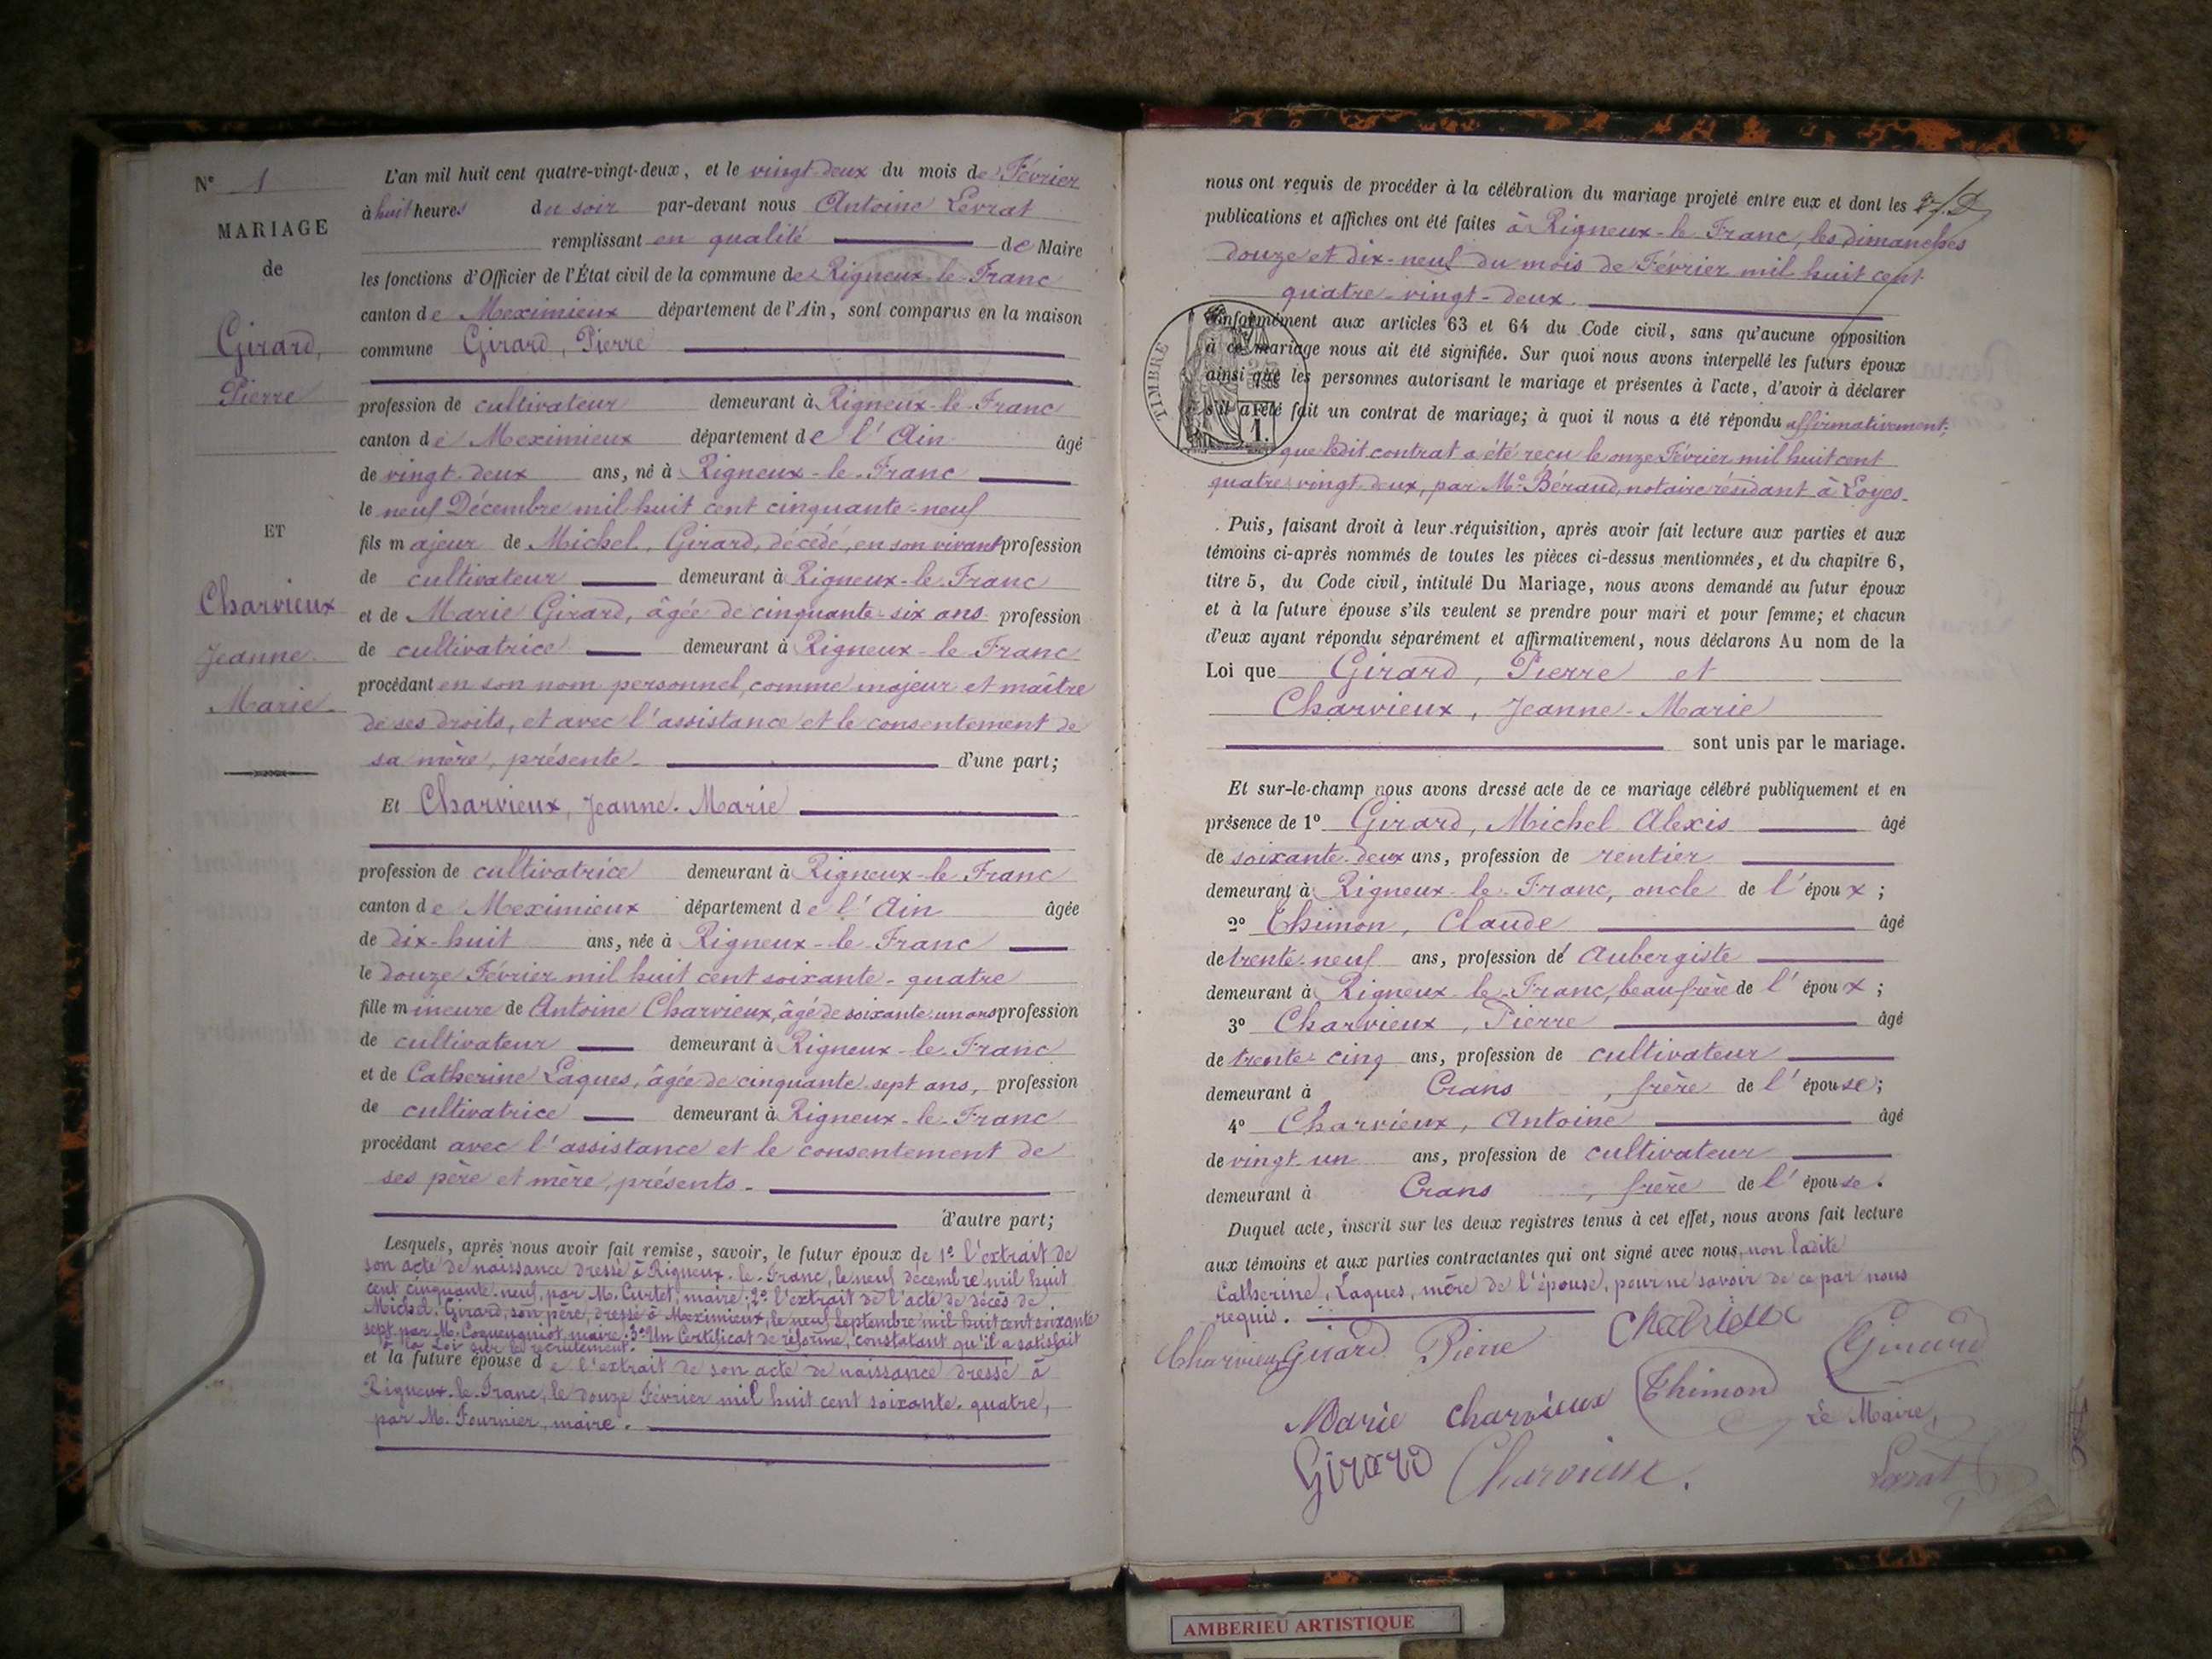 N° 1
MARIAGE
de
Girard,
Pierre
ET
Charvieux
Jeanne
Marie
L'an mil huit cent quatre-vingt-deux, et le vingt-deux du mois de Février
à huit heures du soir par-devant nous Antoine Levrat
remplissant en qualité de Maire
les fonctions d'Officier de l'État civil de la commune de Rigneux-le-Franc
canton de Meximieux département de l'Ain, sont comparus en la maison
commune Girard, Pierre
profession de cultivateur demeurant à Rigneux-le-Franc
canton de Meximieux département de l'Ain âgé
de vingt-deux ans, né à Rigneux-le-Franc
le neuf Décembre mil huit cent cinquante-neuf
fils majeur de Michel, Girard, décédé, en son vivant profession
de cultivateur demeurant à Rigneux-le-Franc
et de Marie Girard, âgée de cinquante-six ans profession
de cultivatrice demeurant à Rigneux-le-Franc
procédant en son nom personnel, comme majeur et maître
de ses droits, et avec l'assistance et le consentement de
sa mère, présente. d'une part;
Et Charvieux, Jeanne-Marie
profession de cultivatrice demeurant à Rigneux-le-Franc
canton de Meximieux département de l'Ain âgée
de dix-huit ans, née à Rigneux-le-Franc
le douze Février mil huit cent soixante-quatre
fille mineure de Antoine Charvieux, âgé de soixante-un ans profession
de cultivateur demeurant à Rigneux-le-Franc
et de Catherine Laques, âgée de cinquante-sept ans, profession
de cultivatrice demeurant à Rigneux-le-Franc
procédant avec l'assistance et le consentement de
ses père et mère, présents.
d'autre part;
Lesquels, après nous avoir fait remise, savoir, le futur époux de 1° l'extrait de
son acte de naissance dressé à Rigneux-le-Franc, le neuf décembre mil huit
cent cinquante-neuf, par M. Curtet, maire; 2° l'extrait de l'acte de décès de
Michel Girard, son père, dressé à Meximieux, le neuf Septembre mil huit cent soixante
sept par M. maire; 3° Un Certificat de réforme, constatant qu'il a satisfait
à la Loi sur le recrutement.
et la future épouse de l'extrait de son acte de naissance dressé à
Rigneux-le-Franc, le douze Février mil huit cent soixante-quatre,
par M. Fournier, maire.
nous ont requis de procéder à la célébration du mariage projeté entre eux et dont les
publications et affiches ont été faites à Rigneux-le-Franc, les dimanches
douze et dix-neuf du mois de Février mil huit cent
quatre-vingt-deux.
TIMBRE
conformément aux articles 63 et 64 du Code civil, sans qu'aucune opposition
à ce mariage nous ait été signifiée. Sur quoi nous avons interpellé les futurs époux
ainsi que les personnes autorisant le mariage et présentes à l'acte, d'avoir à déclarer
s'il a été fait un contrat de mariage; à quoi il nous a été répondu affirmativement;
que ledit contrat a été reçu le onze Février mil huit cent
quatre-vingt-deux, par M° Béraud, notaire résidant à Loyes.
Puis, faisant droit à leur réquisition, après avoir fait lecture aux parties et aux
témoins ci-après nommés de toutes les pièces ci-dessus mentionnées, et du chapitre 6,
titre 5, du Code civil, intitulé Du Mariage, nous avons demandé au futur époux
et à la future épouse s'ils veulent se prendre pour mari et pour femme; et chacun
d'eux ayant répondu séparément et affirmativement, nous déclarons Au nom de la
Loi que Girard, Pierre et
Charvieux, Jeanne-Marie
sont unis par le mariage.
Et sur-le-champ nous avons dressé acte de ce mariage célébré publiquement et en
présence de 1° Girard, Michel Alexis âgé
de soixante-deux ans, profession de rentier
demeurant à Rigneux-le-Franc, oncle de l'époux;
2° Thimon, Claude âgé
de trente-neuf ans, profession de Aubergiste
demeurant à Rigneux-le-Franc, beau-frère de l'époux;
3° Charvieux, Pierre âgé
de trente-cinq ans, profession de cultivateur
demeurant à Crans, frère de l'épouse;
4° Charvieux, Antoine âgé
de vingt-un ans, profession de cultivateur
demeurant à Crans, frère de l'épouse.
Duquel acte, inscrit sur les deux registres tenus à cet effet, nous avons fait lecture
aux témoins et aux parties contractantes qui ont signé avec nous, non ladite
Catherine, Laques, mère de l'épouse, pour ne savoir de ce par nous
requis.
Charvieux Girard Pierre Charvieux Girard
Marie Charvieux Thimon Le Maire,
Girard Charvieux. Levrat
AMBERIEU ARTISTIQUE